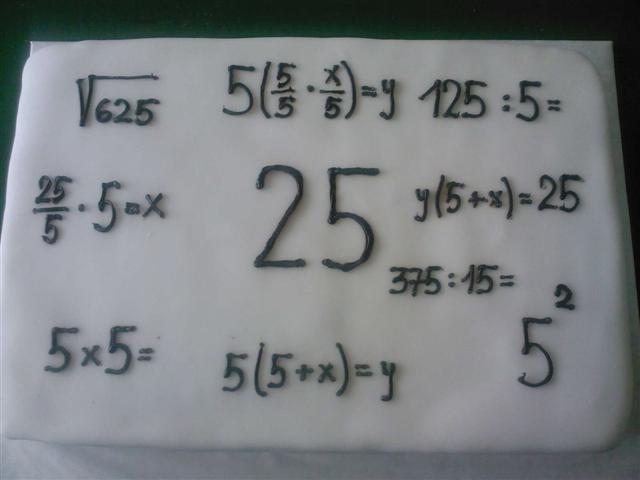 √625
5(5/5 · x/5)=y
125 :5=
25/5 · 5=x
25
y(5+x)=25
375:15=
5x5=
5(5+x)=y
5²